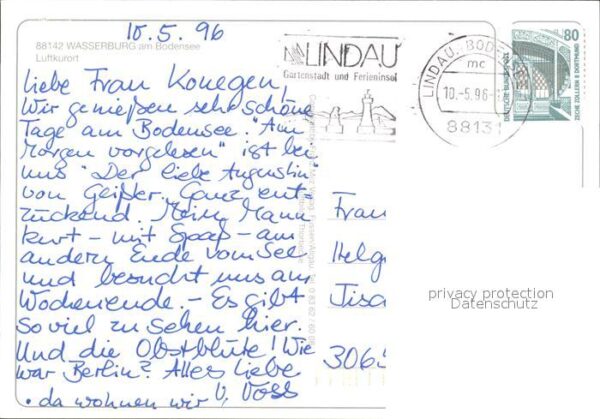 10.5.96
88142 WASSERBURG am Bodensee
Luftkurort
LINDAU
Gartenstadt und Ferieninsel
LINDAU, BODENSEE
mc
10.-5.96
88131
80
DEUTSCHE BUNDESPOST
ZECHE ZOLLERN II DORTMUND
Liebe Frau Konegen,
Wir genießen sehr schöne
Tage am Bodensee. "Am
Morgen vorgelesen" ist bei
uns "Der liebe Augustin"
von Geißler. Ganz ent-
zückend. Mein Mann
kurt - mit Spaß - am
andern Ende vom See
und besucht uns am
Wochenende. - Es gibt
so viel zu sehen hier.
Und die Obstblüte! Wie
war Berlin? Alles Liebe
. da wohnen wir U. Voss
Frau
Helg
Tisa
3065
privacy protection
Datenschutz